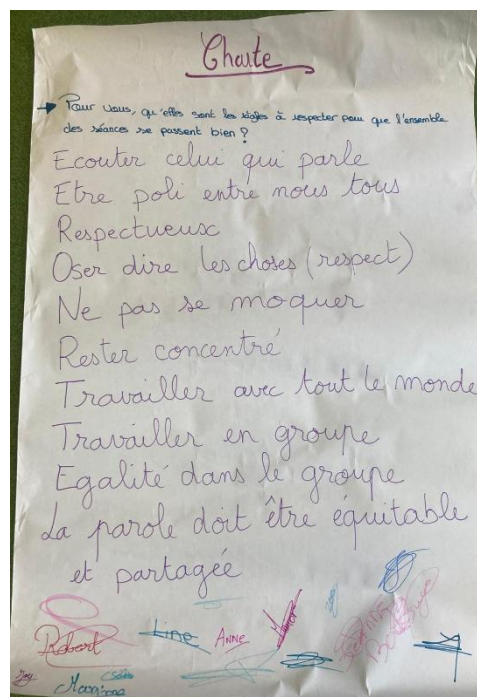 Charte
Pour vous, qu'elles sont les règles à respecter pour que l'ensemble
des séances se passent bien ?
Ecouter celui qui parle
Etre poli entre nous tous
Respectueux
Oser dire les choses (respect)
Ne pas se moquer
Rester concentré
Travailler avec tout le monde
Travailler en groupe
Egalité dans le groupe
La parole doit être équitable
et partagée
Robert Line ANNE